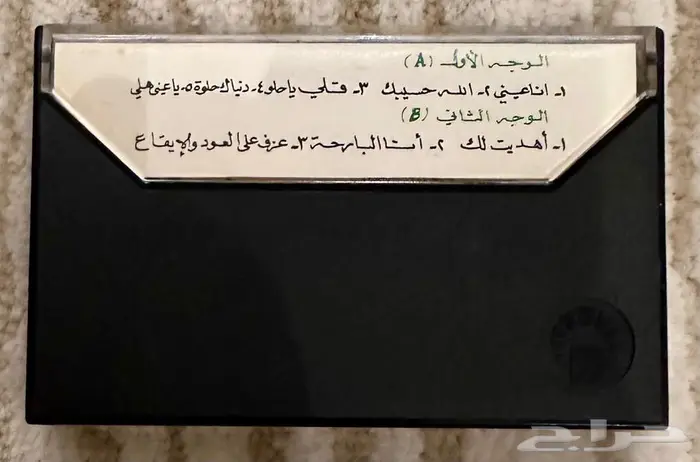 الوجه الأول (A)
١- انا عيني ٢- الله حسيبك ٣- قلي يا حلو ٤- دنياك حلوة ٥- يا عين هلي
الوجه الثاني (B)
١- أهديت لك ٢- أنا البارحة ٣- عزف على العود والإيقاع
حراج